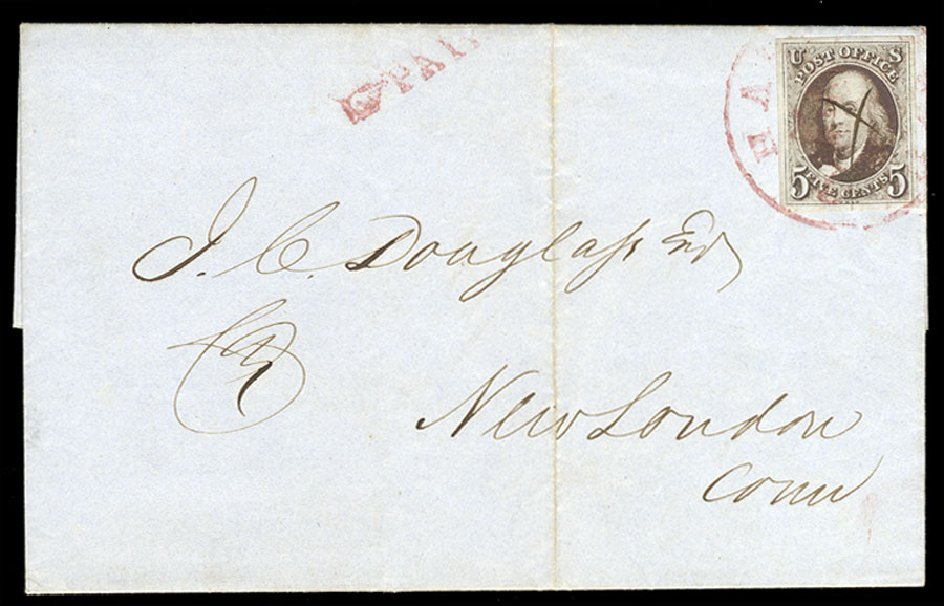 PAI
HA
U S
POST OFFICE
FIVE CENTS
5 5
J. C. Douglass Esq
New London
Conn